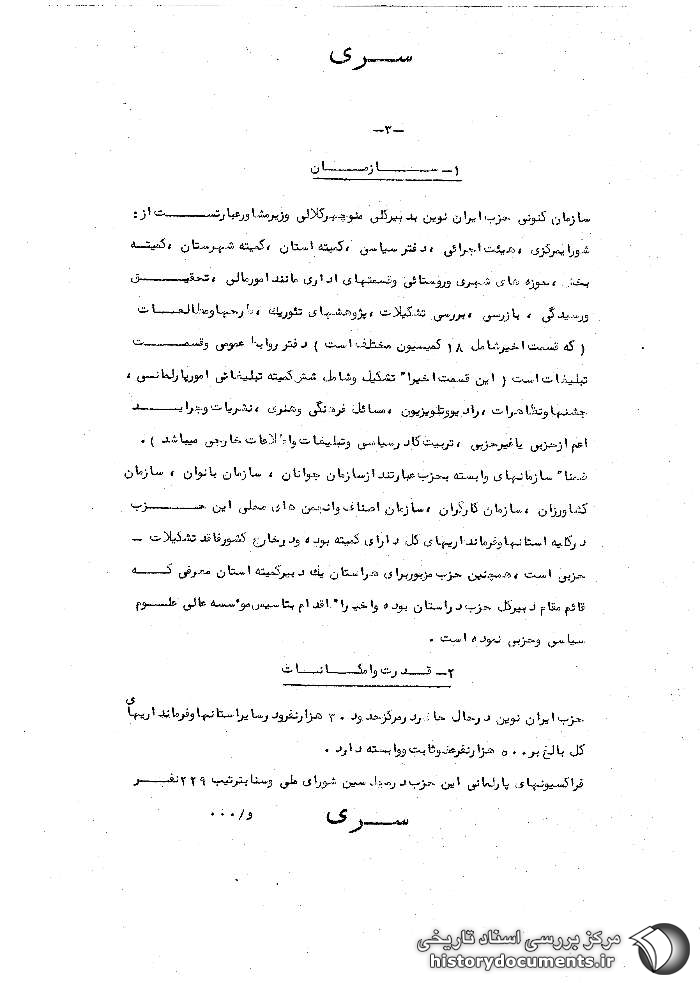 سری
-۳-
۱- سازمان
سازمان کنونی حزب ایران نوین بدبیرکلی منوچهرکلالی وزیرمشاورعبارتست از :
شورایمرکزی ، هیئت اجرائی ، دفتر سیاسی ، کمیته استان ، کمیته شهرستان ، کمیته
بخش ، حوزه های شهری وروستائی وقسمتهای اداری مانند امورمالی ، تحقیق
ورسیدگی ، بازرسی ، بررسی تشکیلات ، پژوهشهای تئوریك ، طرحهاومطالعات
( که قسمت اخیرشامل ۱۸ کمیسیون مختلف است ) دفتر روابط عمومی وقسمت
تبلیغات است ( این قسمت اخیرا" تشکیل وشامل شش کمیته تبلیغاتی امورپارلمانی ،
جشنهاوتظاهرات ، رادیووتلویزیون ، مسائل فرهنگی وهنری ، نشریات وجراید
اعم ازحزبی یاغیرحزبی ، تربیت کادر سیاسی وتبلیغات واطلاعات خارجی میباشد ) .
ضمنا" سازمانهای وابسته بحزب عبارتند ازسازمان جوانان ، سازمان بانوان ، سازمان
کشاورزان ، سازمان کارگران ، سازمان اصناف وانجمن های محلی این حزب
درکلیه استانهاوفرمانداریهای کل دارای کمیته بوده ودرخارج کشورفاقد تشکیلات -
حزبی است ، همچنین حزب مزبوربرای هراستان یك دبیرکمیته استان معرفی که
قائم مقام دبیرکل حزب دراستان بوده واخیرا" اقدام بتاسیس موءسسه عالی علوم
سیاسی وحزبی نموده است .
۲- قدرت وامکانات
حزب ایران نوین درحال حاضردرمرکزحدود ۳۰ هزارنفرودرسایراستانهاوفرمانداریهای
کل بالغ بر ۵۰۰ هزارنفرعضوثابت ووابسته دارد .
فراکسیونهای پارلمانی این حزب درمجلسین شورای ملی وسنابترتیب ۲۲۹ نفر
و/۰۰۰
سری
مرکز بررسی اسناد تاریخی
historydocuments.ir